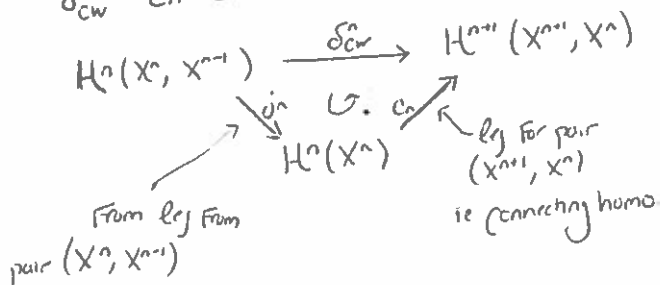 δcw
δⁿcw
Hⁿ(Xⁿ, Xⁿ⁻¹) → Hⁿ⁺¹(Xⁿ⁺¹, Xⁿ)
jⁿ ↻. cₙ
Hⁿ(Xⁿ)
leg For pair
(Xⁿ⁺¹, Xⁿ)
ie Connecting homo
From leg From
pair (Xⁿ, Xⁿ⁻¹)